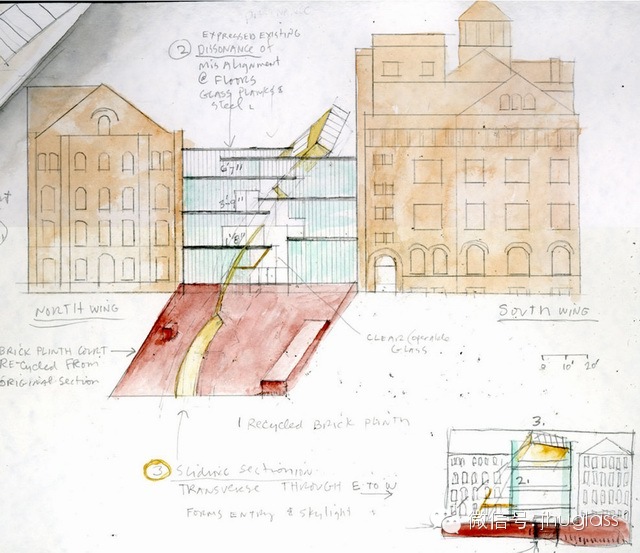 2
EXPRESSED EXISTING
DISSONANCE of
MisAlignment
@ FLOORS
GLASS PLANKS &
Steel L
6'7"
3'-9"
NORTH WING
South WING
BRICK PLINTH COURT
RE-CYCLED FROM
ORIGINAL SECTION
CLEAR (operable
GLASS
0 10' 20'
1 Recycled BRICK PLINTH
3
SECTION
TRANSVERSE THROUGH E TO W
FORMS ENTRY & SKYLIGHT
3.
2.
微信号: jhuglass